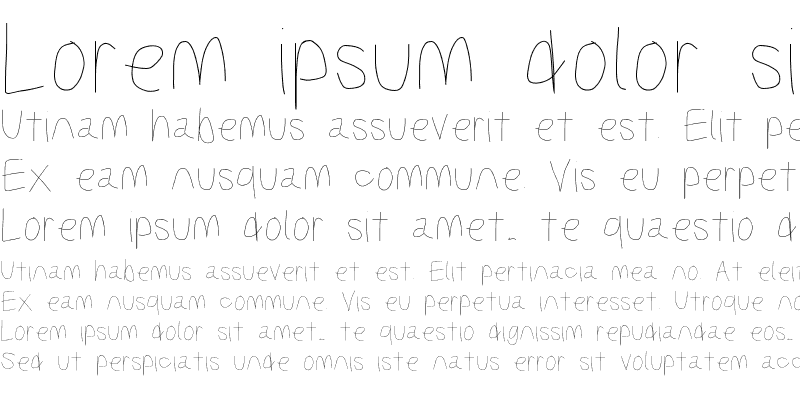 Lorem ipsum dolor si
Utinam habemus assueverit et est. Elit pe
Ex eam nusquam commune. Vis eu perpet
Lorem ipsum dolor sit amet.. te quaestio d
Utinam habemus assueverit et est. Elit pertinacia mea no. At eleif
Ex eam nusquam commune. Vis eu perpetua interesset. Utroque no
Lorem ipsum dolor sit amet.. te quaestio dignissim repudiandae eos..
Sed ut perspiciatis unde omnis iste natus error sit voluptatem acc